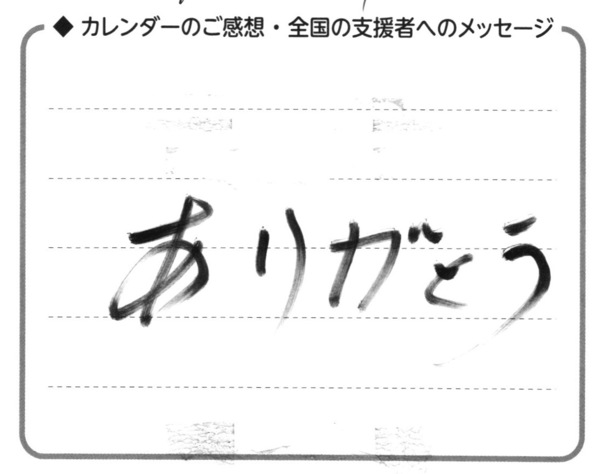 ◆ カレンダーのご感想・全国の支援者へのメッセージ
ありがとう